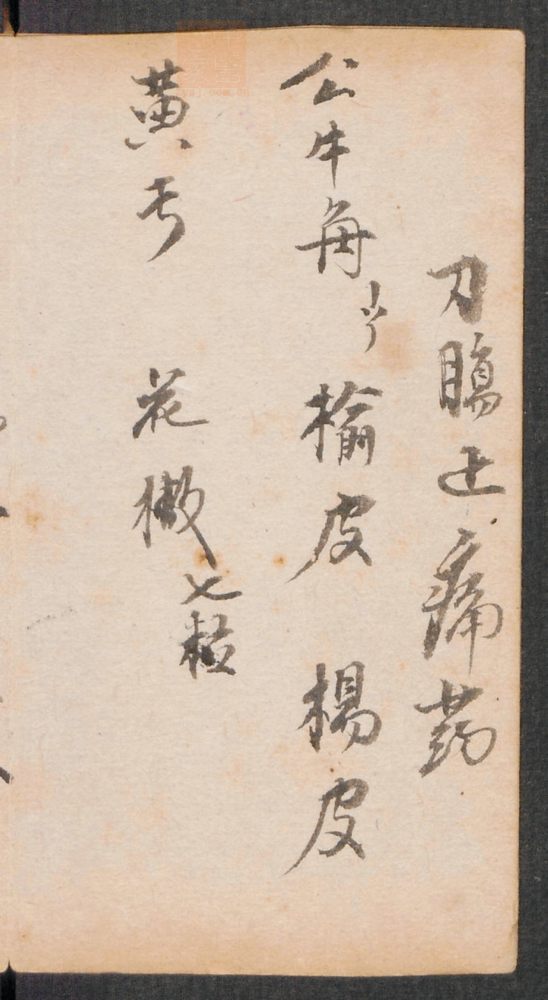 刀膓止痛药
公牛角 榆皮 楊皮
黄 花椒七粒